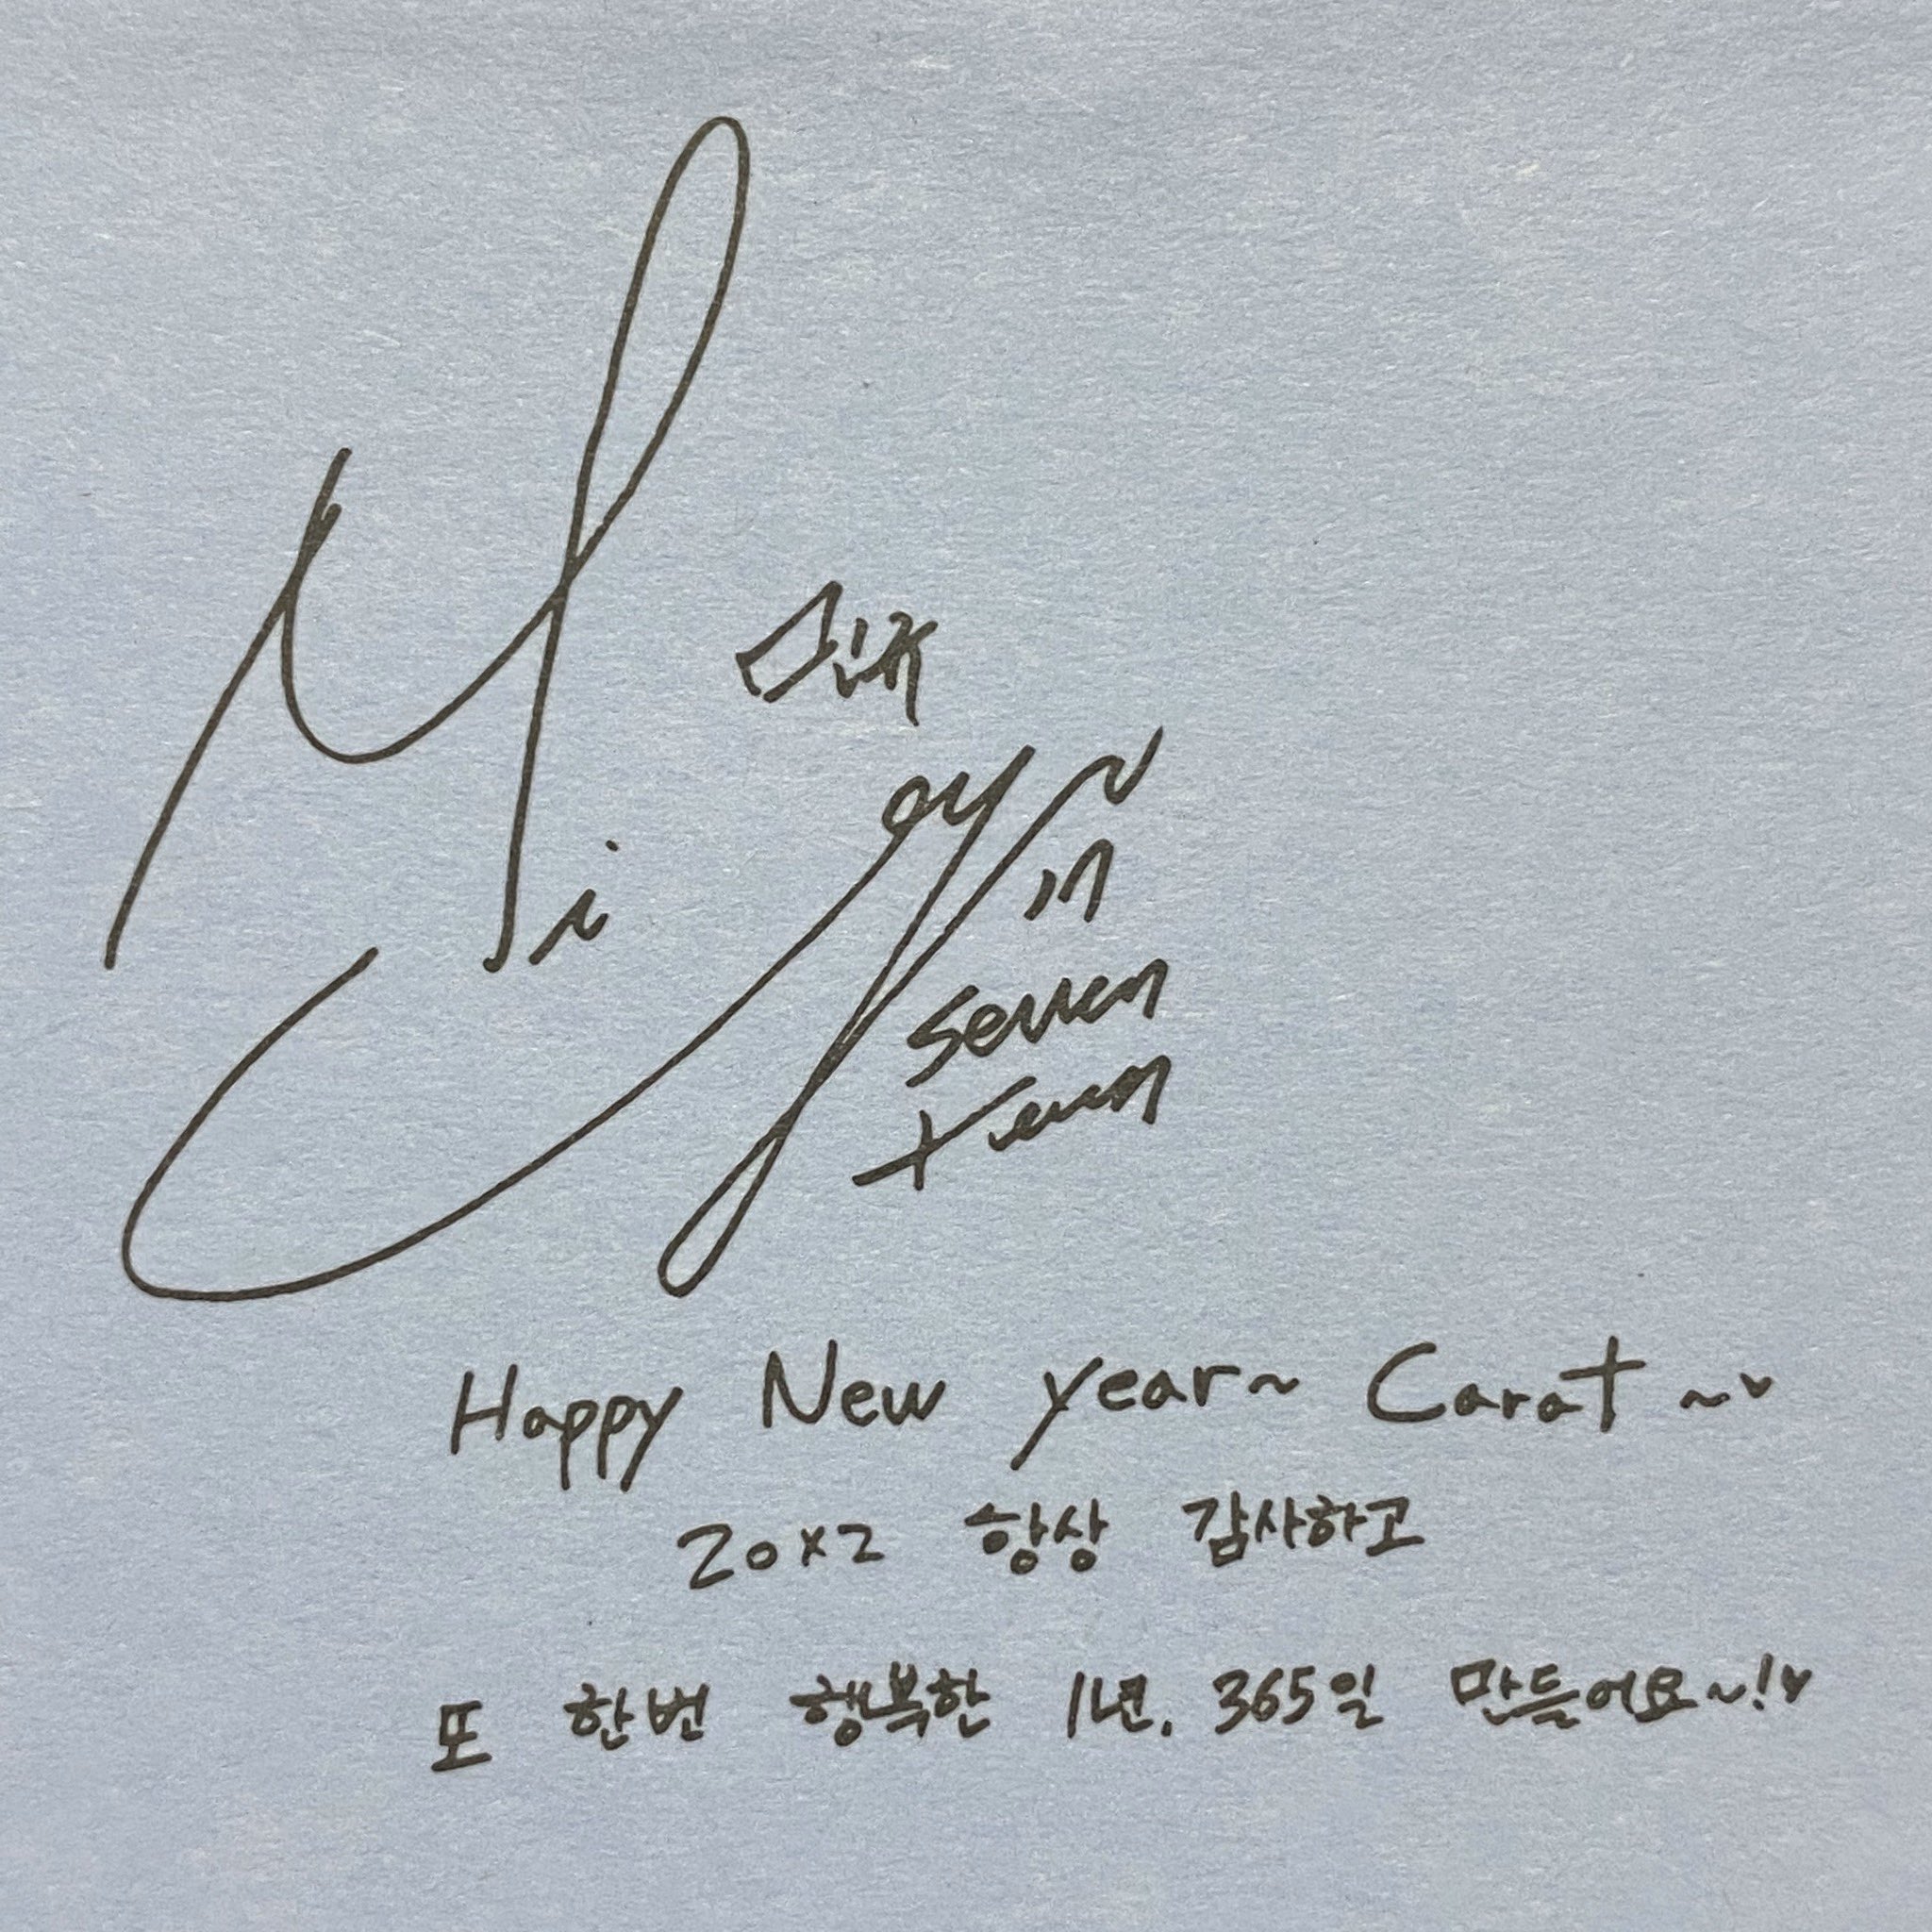 Mingyu
민규
in
seven
teen
Happy New year~ Carat~♥
20x2 항상 감사하고
또 한번 행복한 1년, 365일 만들어요~!♥